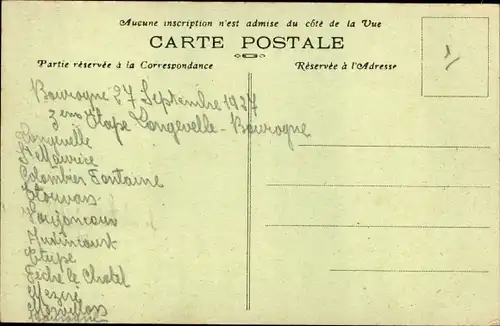 Aucune inscription n'est admise du côté de la Vue
CARTE POSTALE
Partie réservée à la Correspondance
Réservée à l'Adresse
Bourogne 27 Septembre 1927
3eme Etape Longevelle - Bourogne
Longevelle
St Maurice
Colombier Fontaine
Etouvans
Voujeaucourt
Audincourt
Etupe
Feche le Chatel
Meziré
Morvillars
Bourogne